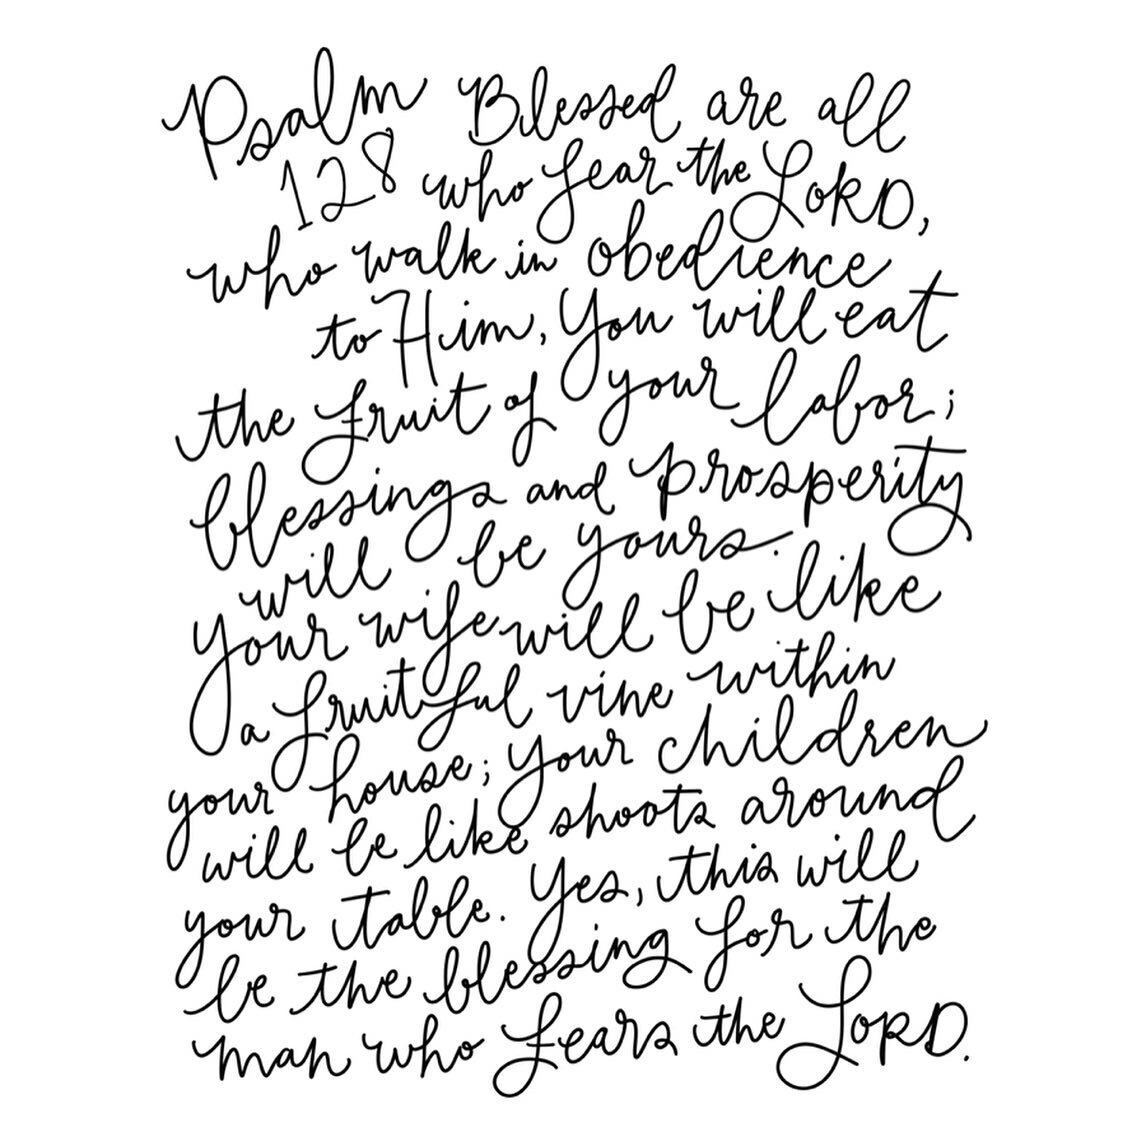 Psalm Blessed are all
128 who fear the LORD,
who walk in obedience
to Him, You will eat
the fruit of your labor;
blessings and prosperity
will be yours.
Your wife will be like
a fruitful vine within
your house; your children
will be like shoots around
your table. Yes, this will
be the blessing for the
man who fears the LORD.